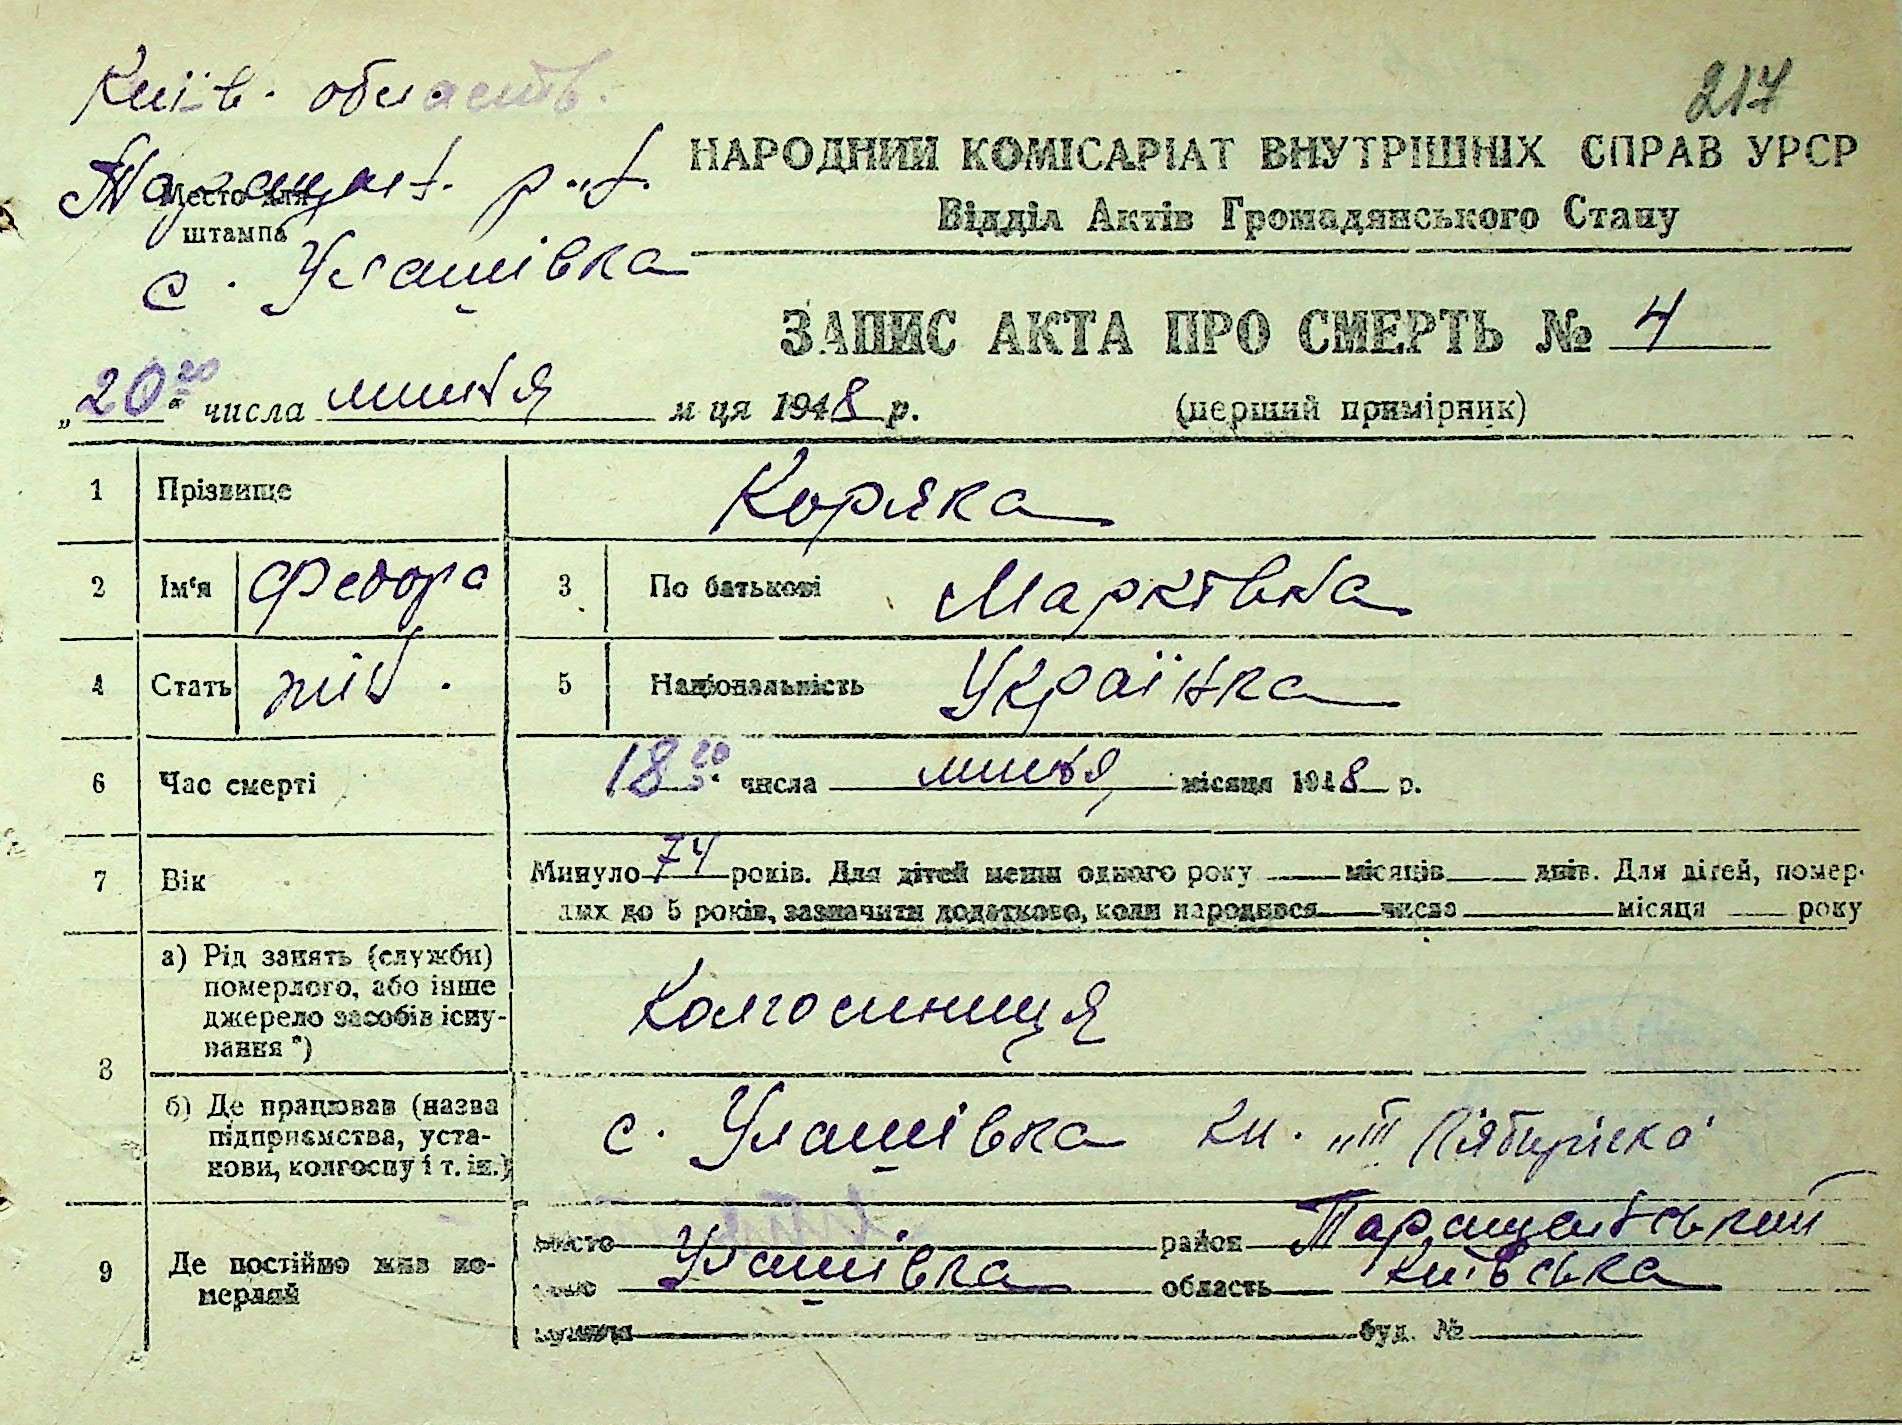 Київ. область.
217
Таращан. р-н.
НАРОДНИЙ КОМІСАРІАТ ВНУТРІШНІХ СПРАВ УРСР
Место для
штампа
Відділ Актів Громадянського Стану
с. Улашівка
ЗАПИС АКТА ПРО СМЕРТЬ № 4
„20“ числа липня м-ця 1948 р.
(перший примірник)
1 Прізвище Коряка
2 Ім'я Федора 3 По батькові Марківна
4 Стать жін. 5 Національність Українка
6 Час смерті 18 числа липня місяця 1948 р.
7 Вік Минуло 74 років. Для дітей менш одного року місяців днів. Для дітей, помер-
лих до 5 років, зазначити додатково, коли народився числа місяця року
8 а) Рід занять (служби)
померлого, або інше
джерело засобів існу-
вання *) Колгоспниця
б) Де працював (назва
підприємства, уста-
нови, колгоспу і т. ін.) с. Улашівка „ІІІ
9 Де постійно жив по-
мерлий
місто район Таращанський
село Улашівка область Київська
вулиця буд. №